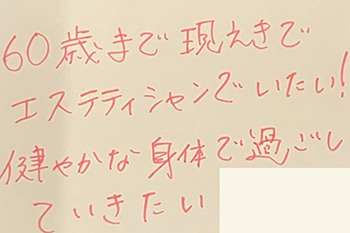 60歳まで現えきで
エステティシャンでいたい!
健やかな身体で過ごし
ていきたい